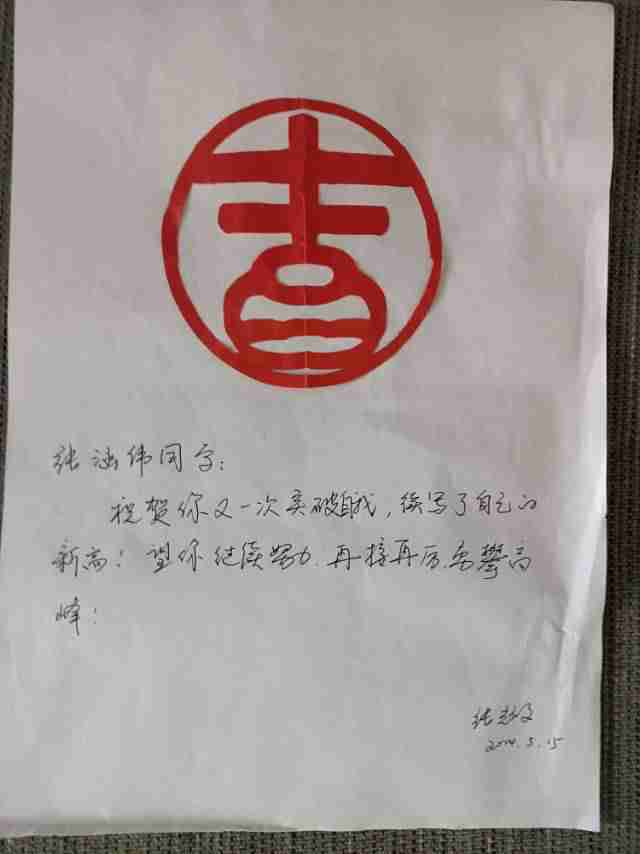 张涵伟同学:
祝贺你又一次突破自我,续写了自己的
新高!望你继续努力.再接再厉,勇攀高
峰!
2024.5.15